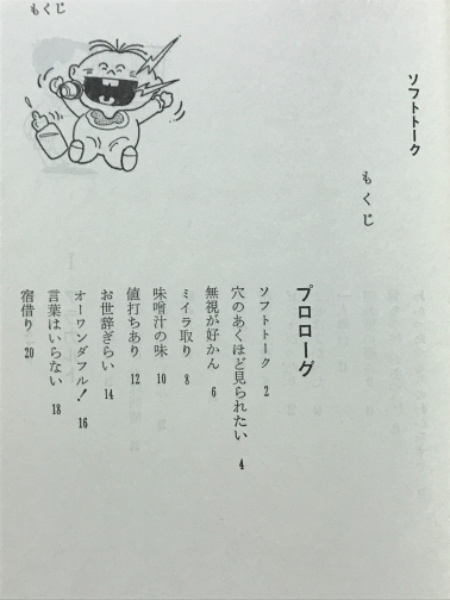 もくじ
ソフトトーク
もくじ
プロローグ
ソフトトーク 2
穴のあくほど見られたい 4
無視が好かん 6
ミイラ取り 8
味噌汁の味 10
値打ちあり 12
お世辞ぎらい 14
オーワンダフル! 16
言葉はいらない 18
宿借り 20